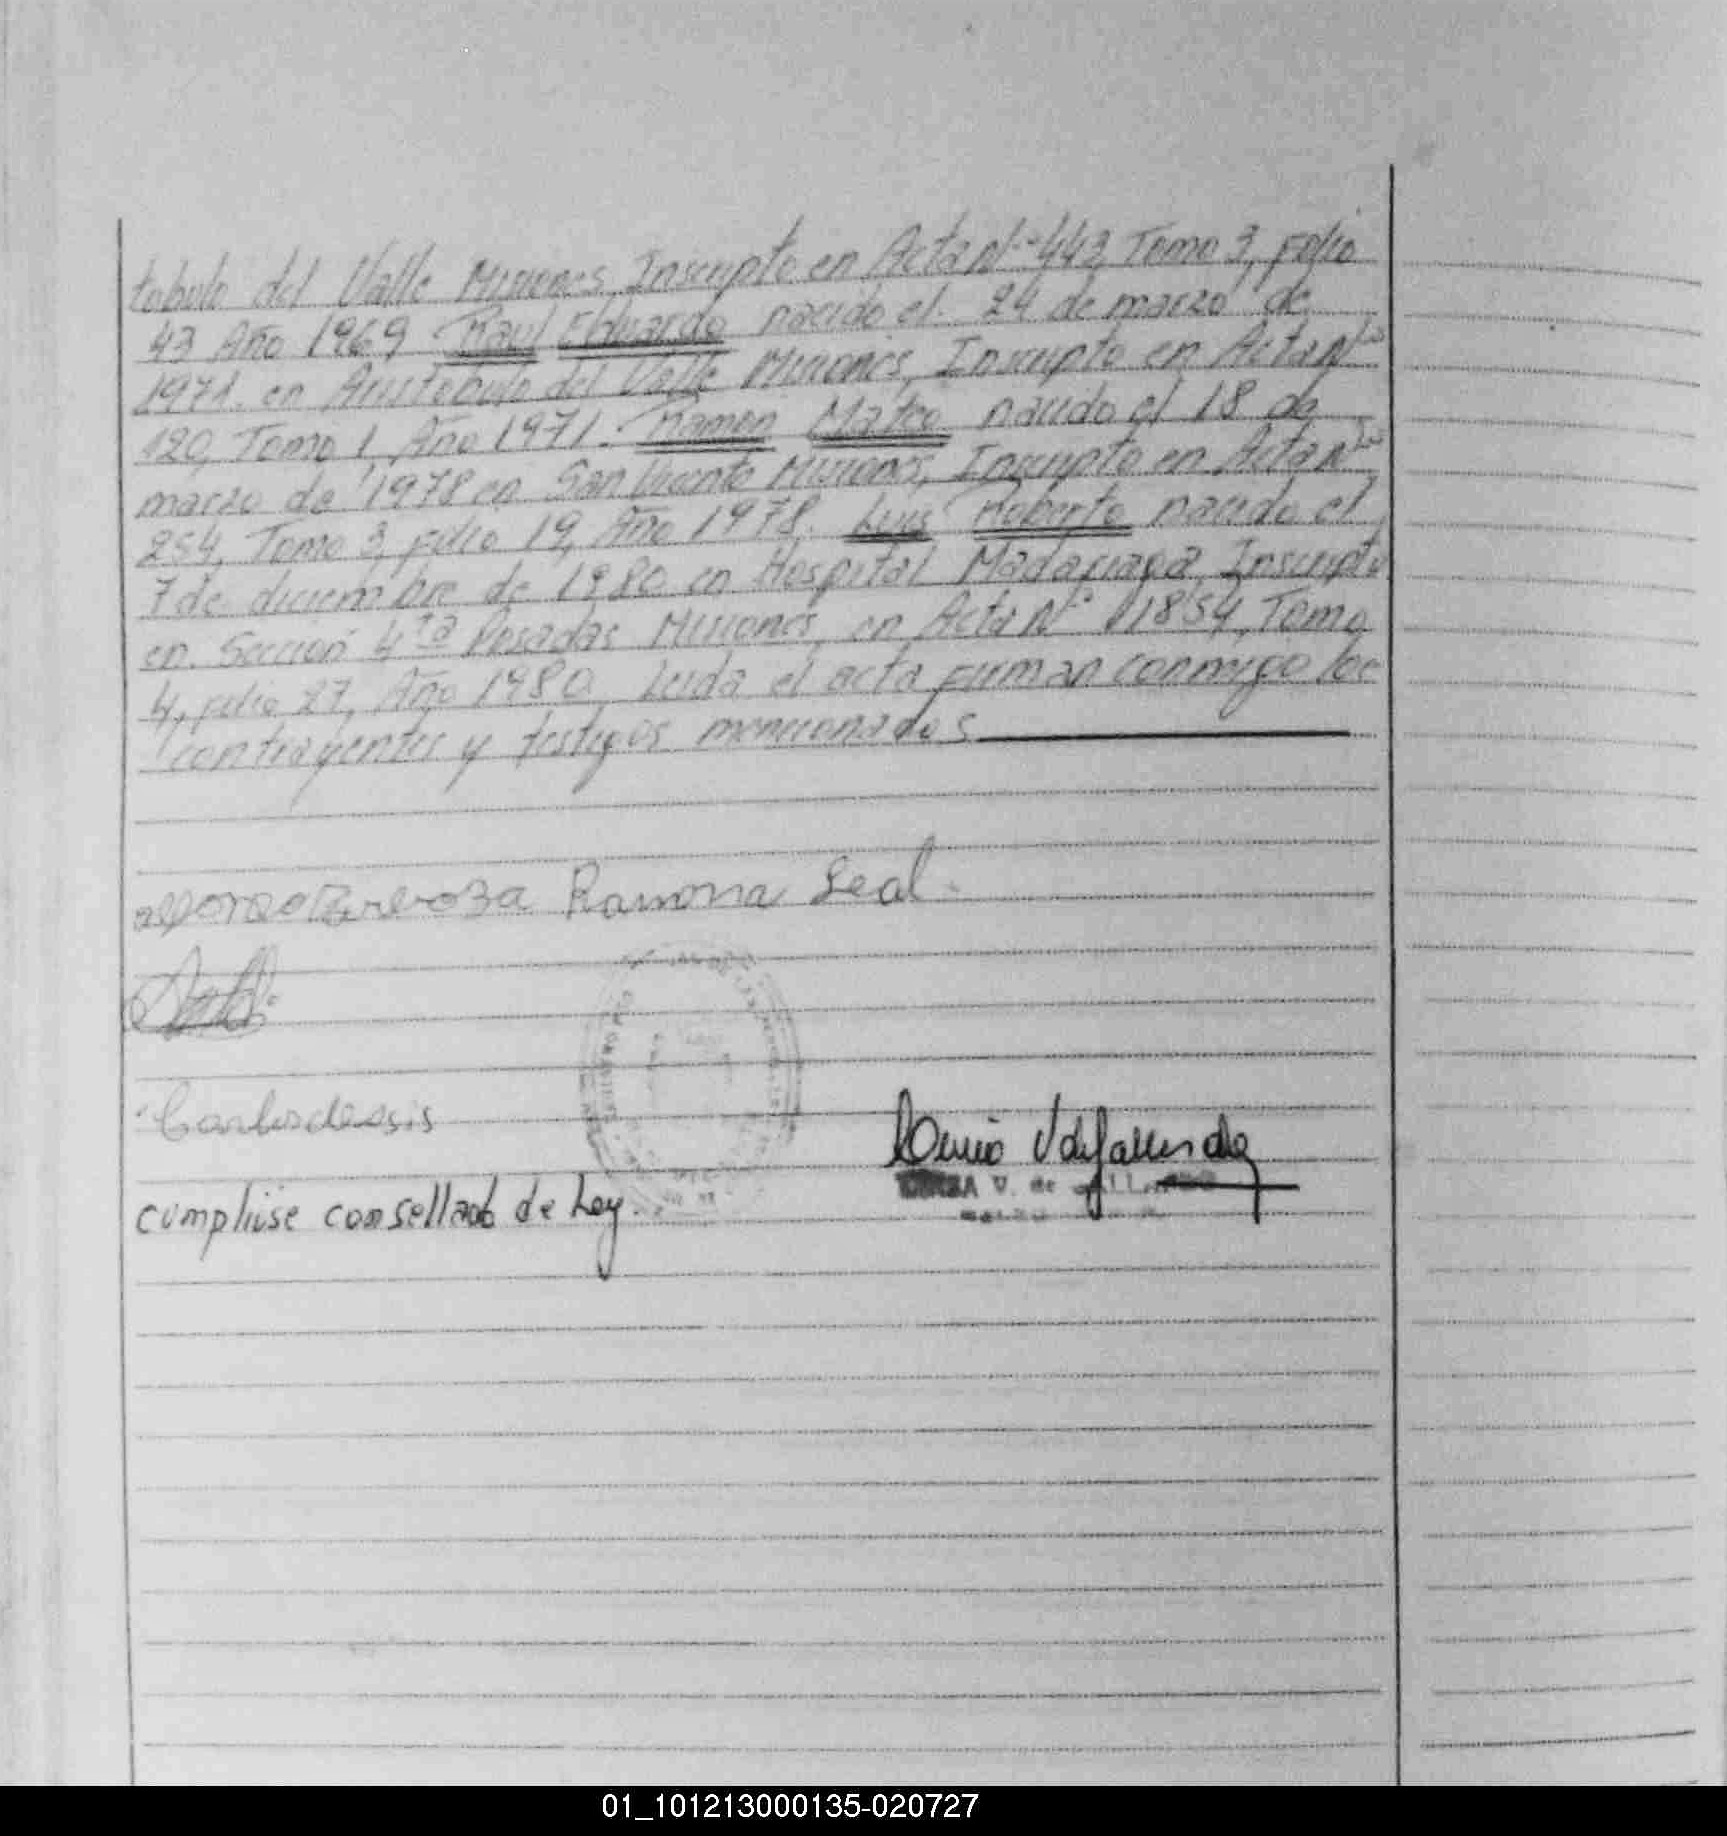 tobulo del Valle Misiones, Inscripto en Acta Nº 443, Tomo 3, folio
43 Año 1969 Raul Eduardo nacido el 24 de marzo de
1971. en Aristobulo del Valle Misiones, Inscripto en Acta Nº
120, Tomo 1, Año 1971. Ramon Mateo nacido el 18 de
marzo de 1978 en San Vicente Misiones, Inscripto en Acta Nº
254, Tomo 3, folio 19, Año 1978. Luis Roberto nacido el
7 de diciembre de 1980 en Hospital Madariaga, Inscripto
en Sección 4ta Posadas Misiones, en Acta Nº 1854, Tomo
4, folio 27, Año 1980. Leida el acta firman conmigo los
contrayentes y testigos mencionados
Ramona Leal.
cumplióse con sellado de Ley.
V. de
01_101213000135-020727